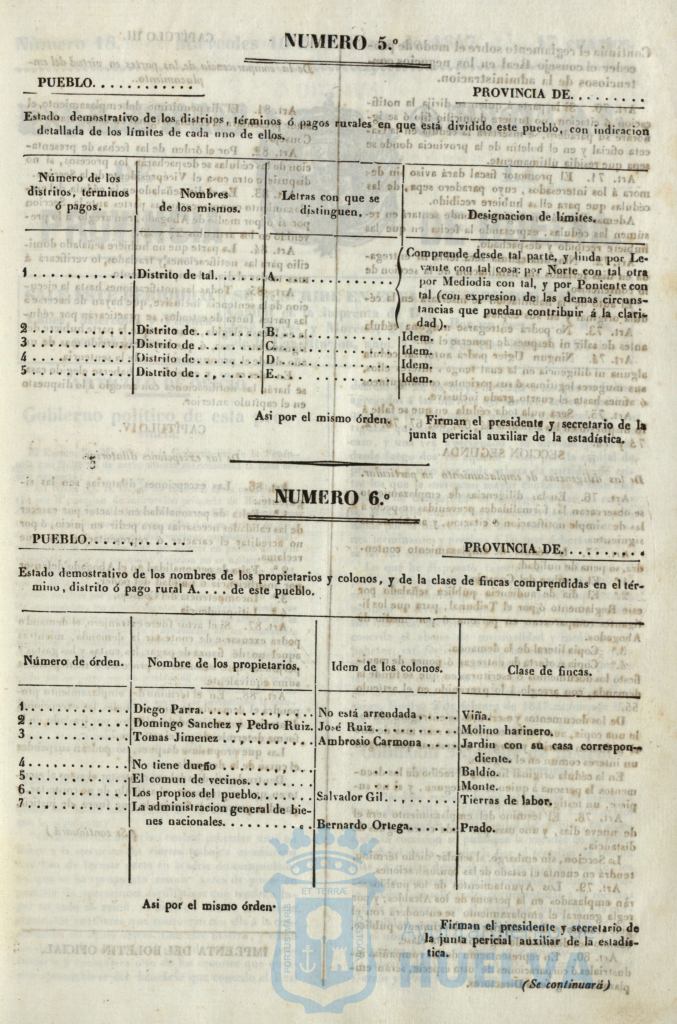 NUMERO 5.º
PUEBLO............
PROVINCIA DE.........
Estado demostrativo de los distritos, términos ó pagos rurales en que está dividido este pueblo, con indicacion
detallada de los límites de cada uno de ellos.
Número de los
distritos, términos
ó pagos.
Nombres
de los mismos.
Letras con que se
distinguen.
Designacion de límites.
1............. Distrito de tal....... A............
Comprende desde tal parte, y linda por Le-
vante con tal cosa: por Norte con tal otra
por Mediodia con tal, y por Poniente con
tal (con expresion de las demas circuns-
tancias que puedan contribuir á la clari-
dad).
2............. Distrito de......... B............ Idem.
3............. Distrito de......... C............ Idem.
4............. Distrito de......... D............ Idem.
5............. Distrito de......... E............ Idem.
Asi por el mismo órden.
Firman el presidente y secretario de la
junta pericial auxiliar de la estadística.
NUMERO 6.º
PUEBLO............
PROVINCIA DE.........
Estado demostrativo de los nombres de los propietarios y colonos, y de la clase de fincas comprendidas en el tér-
mino, distrito ó pago rural A.... de este pueblo.
Número de órden.
Nombre de los propietarios.
Idem de los colonos.
Clase de fincas.
1............. Diego Parra............ No está arrendada..... Viña.
2............. Domingo Sanchez y Pedro Ruiz. José Ruiz.......... Molino harinero.
3............. Tomas Jimenez........... Ambrosio Carmona.... Jardin con su casa correspon-
diente.
4............. No tiene dueño............ ... Baldío.
5............. El comun de vecinos........ ... Monte.
6............. Los propios del pueblo...... Salvador Gil......... Tierras de labor.
7............. La administracion general de bie-
nes nacionales.......... Bernardo Ortega...... Prado.
Asi por el mismo órden.
Firman el presidente y secretario de
la junta pericial auxiliar de la estadís-
tica.
(Se continuará)
HUELVA